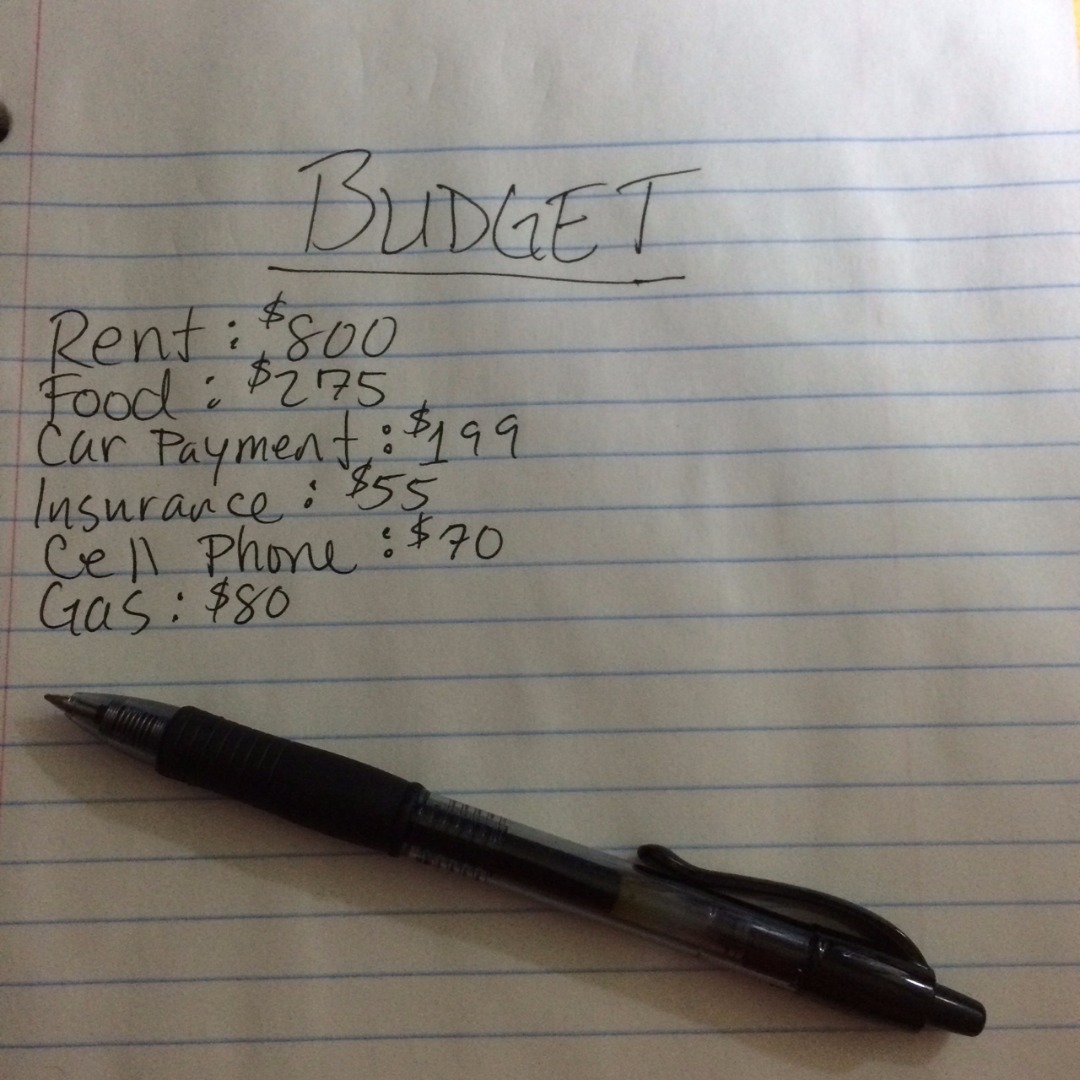 BUDGET
Rent: $800
Food: $275
Car Payment: $199
Insurance: $55
Cell Phone: $70
Gas: $80